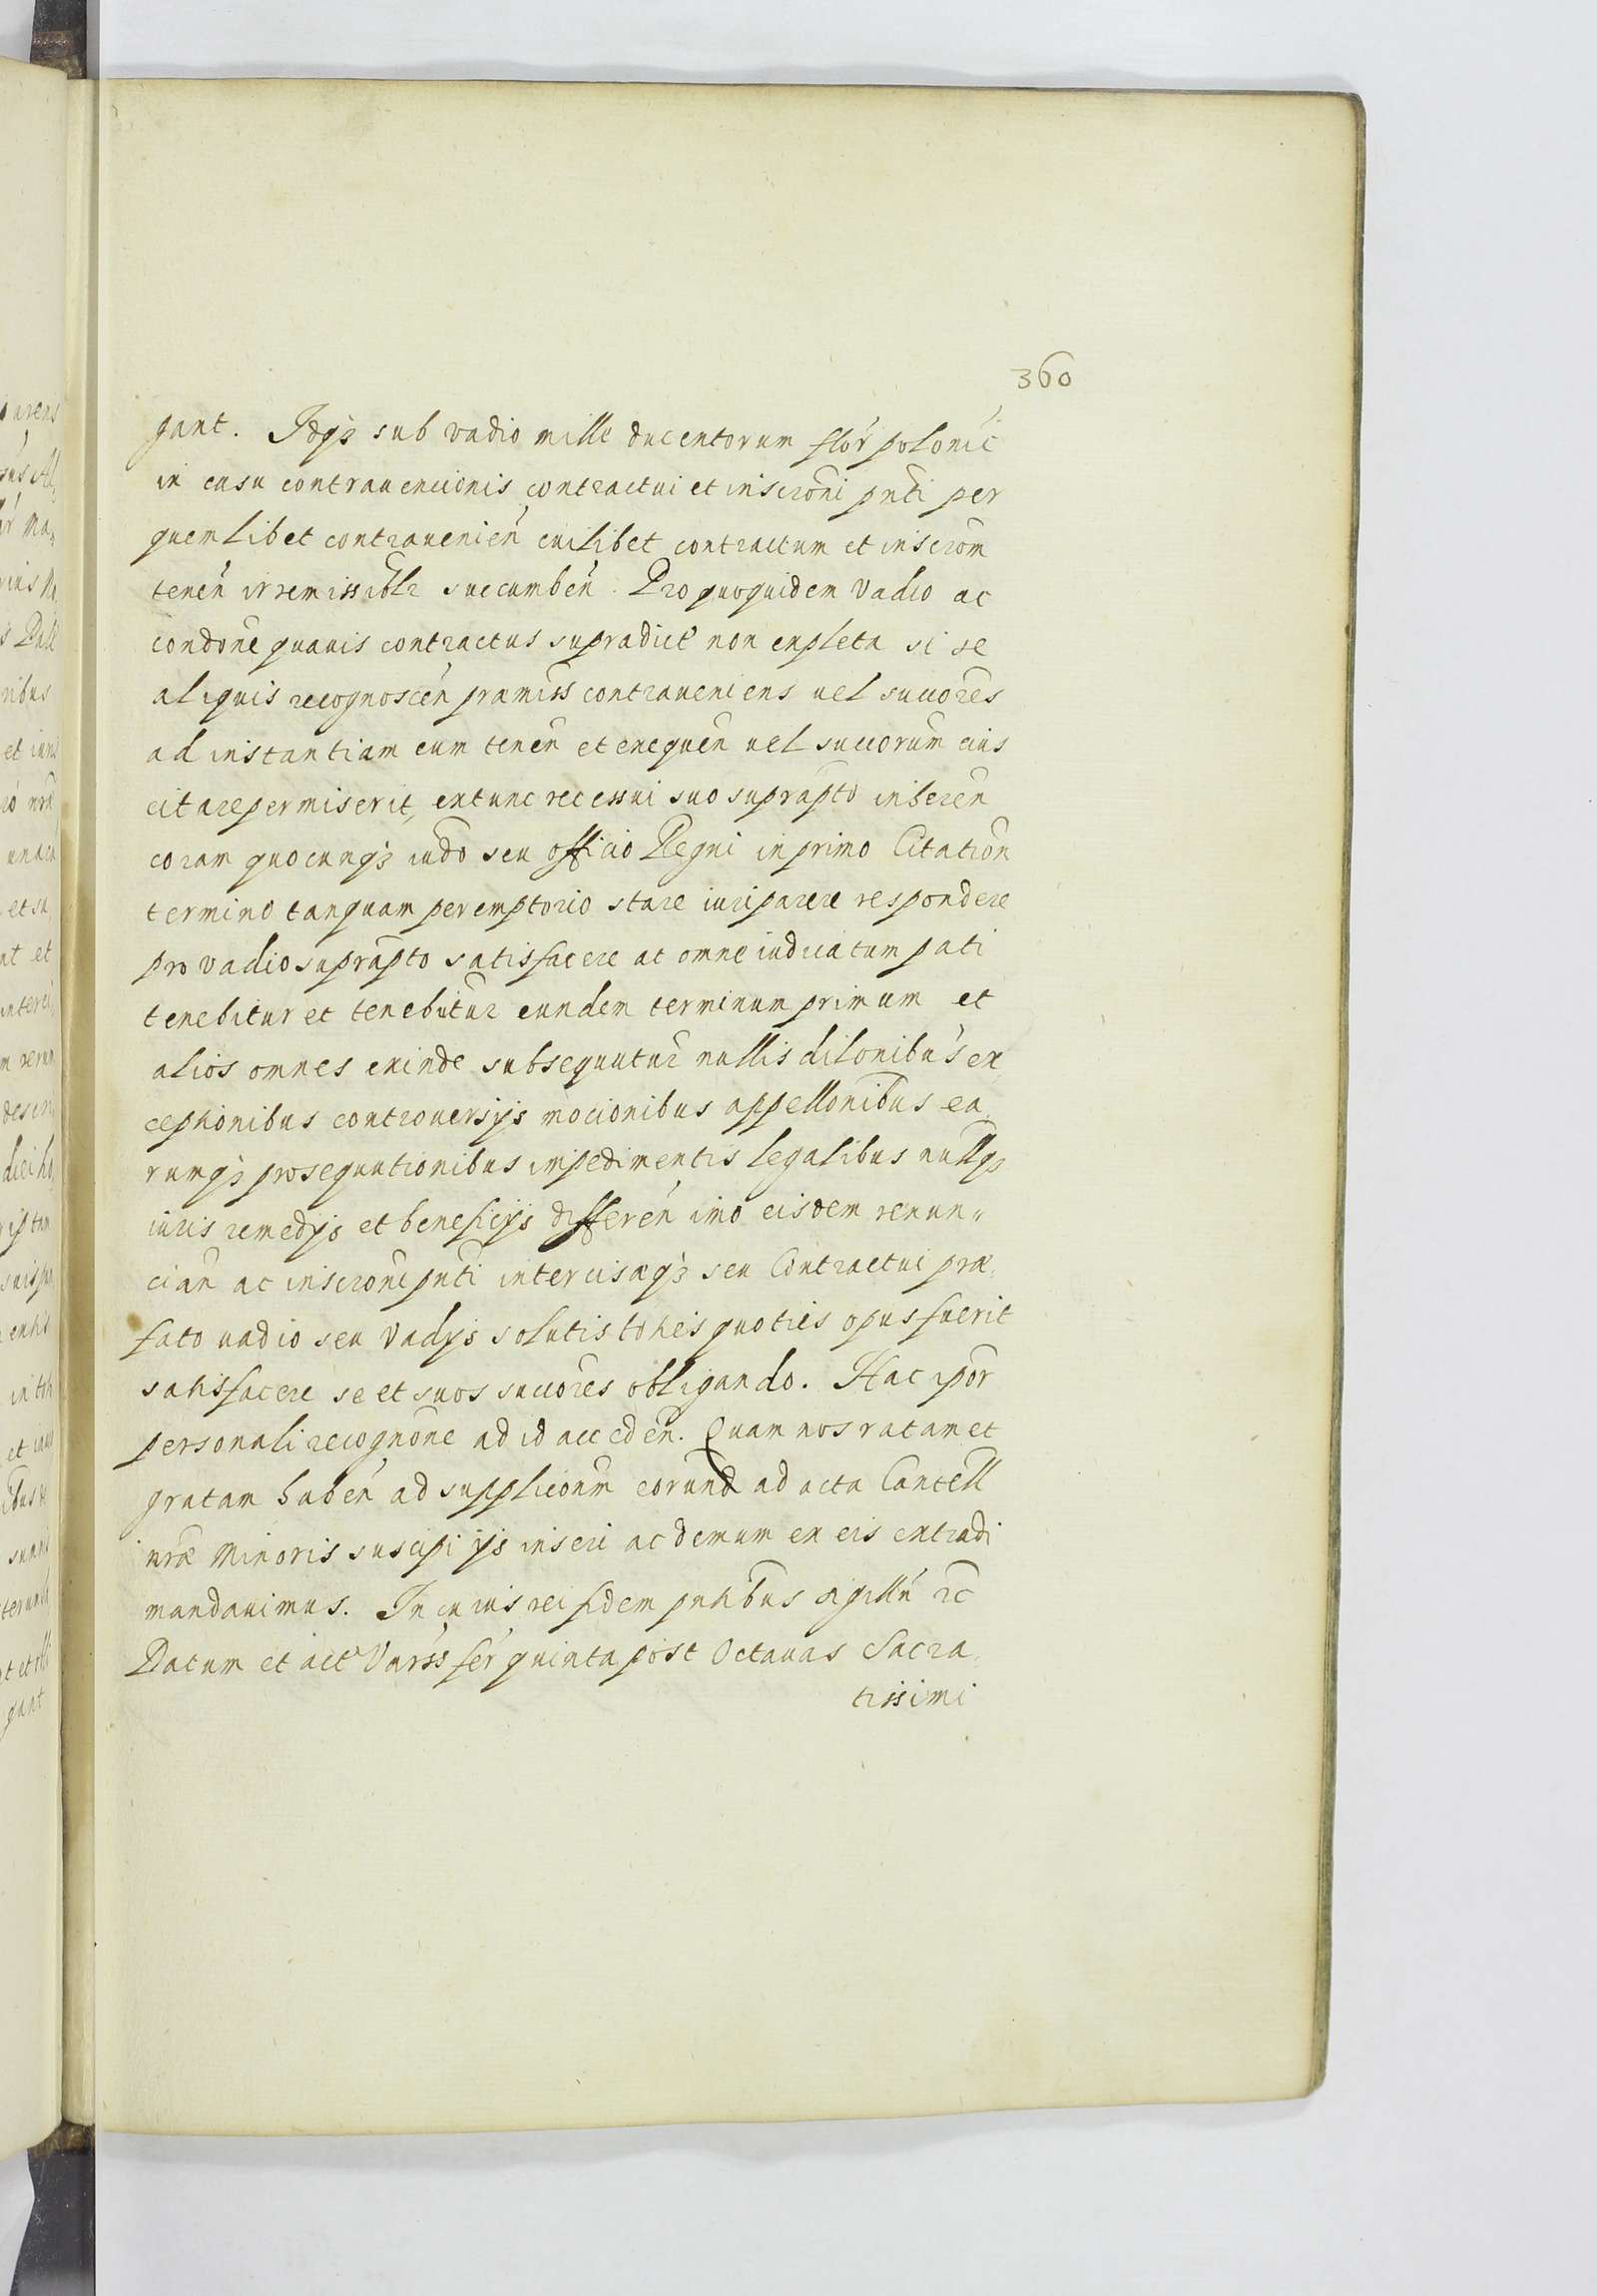 360
gant. Idqꝫ sub vadio mille ducentorum flor polonic
in casu contrauencionis contractui et inscrōni pn̄ti per
quemlibet contrauenien̄ cuilibet contractum et inscrōm
tenen̄ irremissiblr succumben̄. Pro quoquidem vadio ac
condōne quauis contractus supradict non expleta si se
aliquis recognoscen̄ pramiss contraueniens uel succōres
ad instantiam eum tenen̄ et exequen̄ uel succorum eius
citare permiserit, extunc recessui suo suprapto inheren̄
coram quocunqꝫ iudō seu officio Regni in primo Citation̄
termino tanquam peremptorio stare iuri parere respondere
pro vadio suprapto satisfacere ac omne iudicatum pati
tenebitur et tenebitur eundem terminum primum et
alios omnes exinde subsequutur nullis dilonibus ex,
ceptionibus controuersijs mocionibus appellōnibus ea,
rumqꝫ prosequutionibus impedimentis legalibus nullqꝫ
iuris remedijs et beneficijs differen̄ imo eisdem renun„
cian̄ ac inscrōni pn̄ti intercisaeqꝫ seu Contractui præ,
fato uadio seu vadijs solutis toties quoties opus fuerit
satisfacere se et suos succōres obligando. Hac ipōr
personali recognōne ad id acceden̄. Quam nos ratam et
gratam haben̄ ad supplicōnm eorund ad acta Cancell
nr̄æ Minoris suscipi ijs inseri ac demum ex eis extradi
mandauimus. In cuius rei fidem pn̄tibus sigillū ꝛc
Datum et act Varss fer quinta post Octauas Sacra,
tissimi